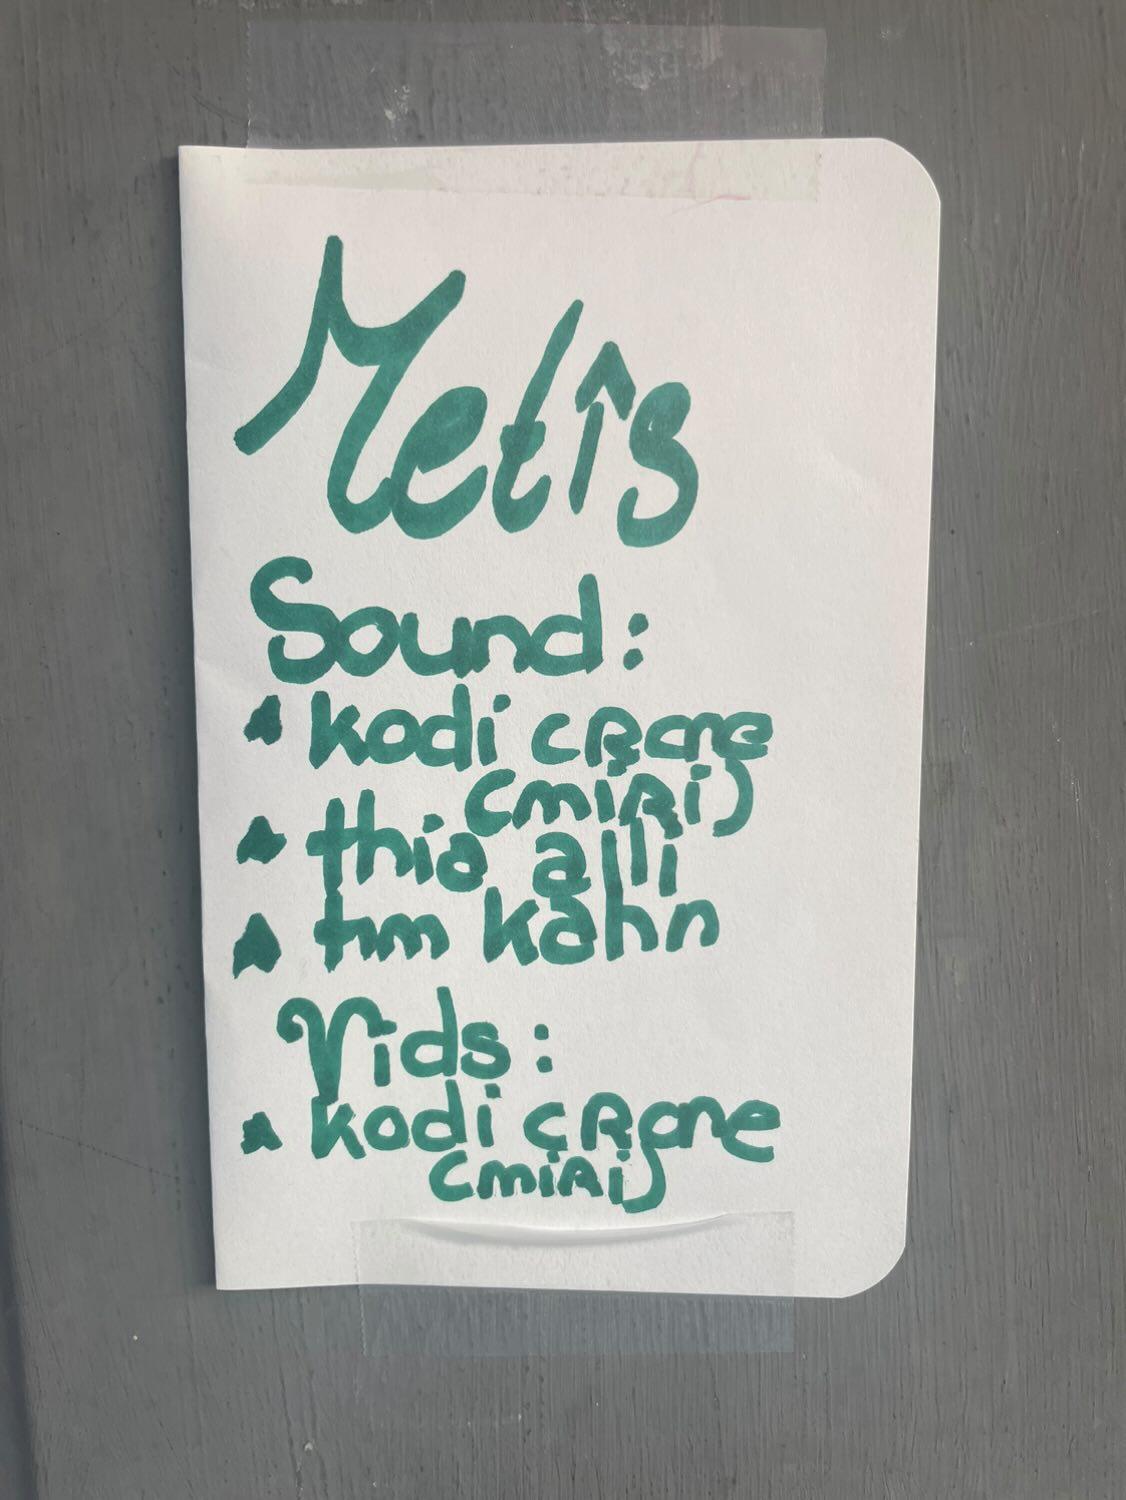 Metîs
Sound:
kodi cRane
(miRi)
thia alli
tim kahn
Vids:
kodi cRane
(miRi)